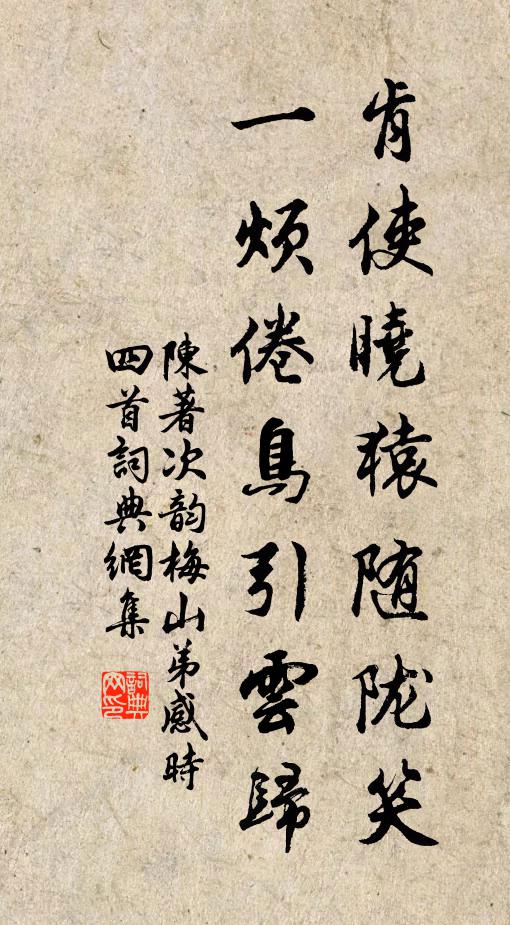 肯使曉猿随陇笑
一煩倦鳥引雲歸
陳著次韵梅山弟感時
四首詞典網集
詞典
网印